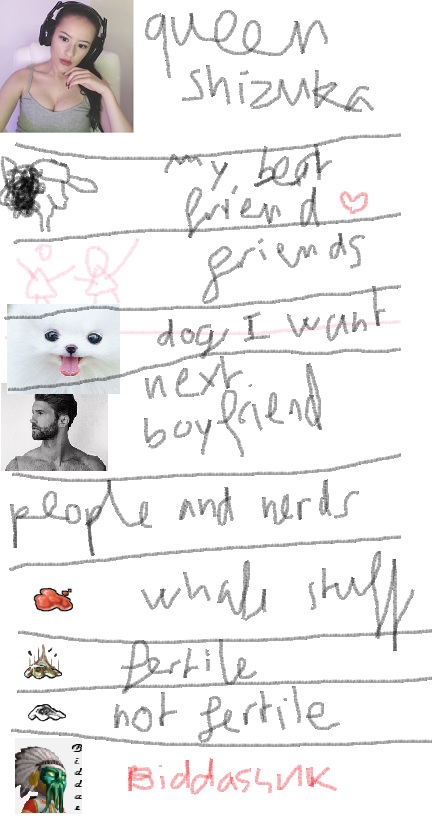 queen
shizuka
my best
friend
friends
dog I want
next
boyfriend
people and nerds
whale stuff
fertile
not fertile
Biddashuk